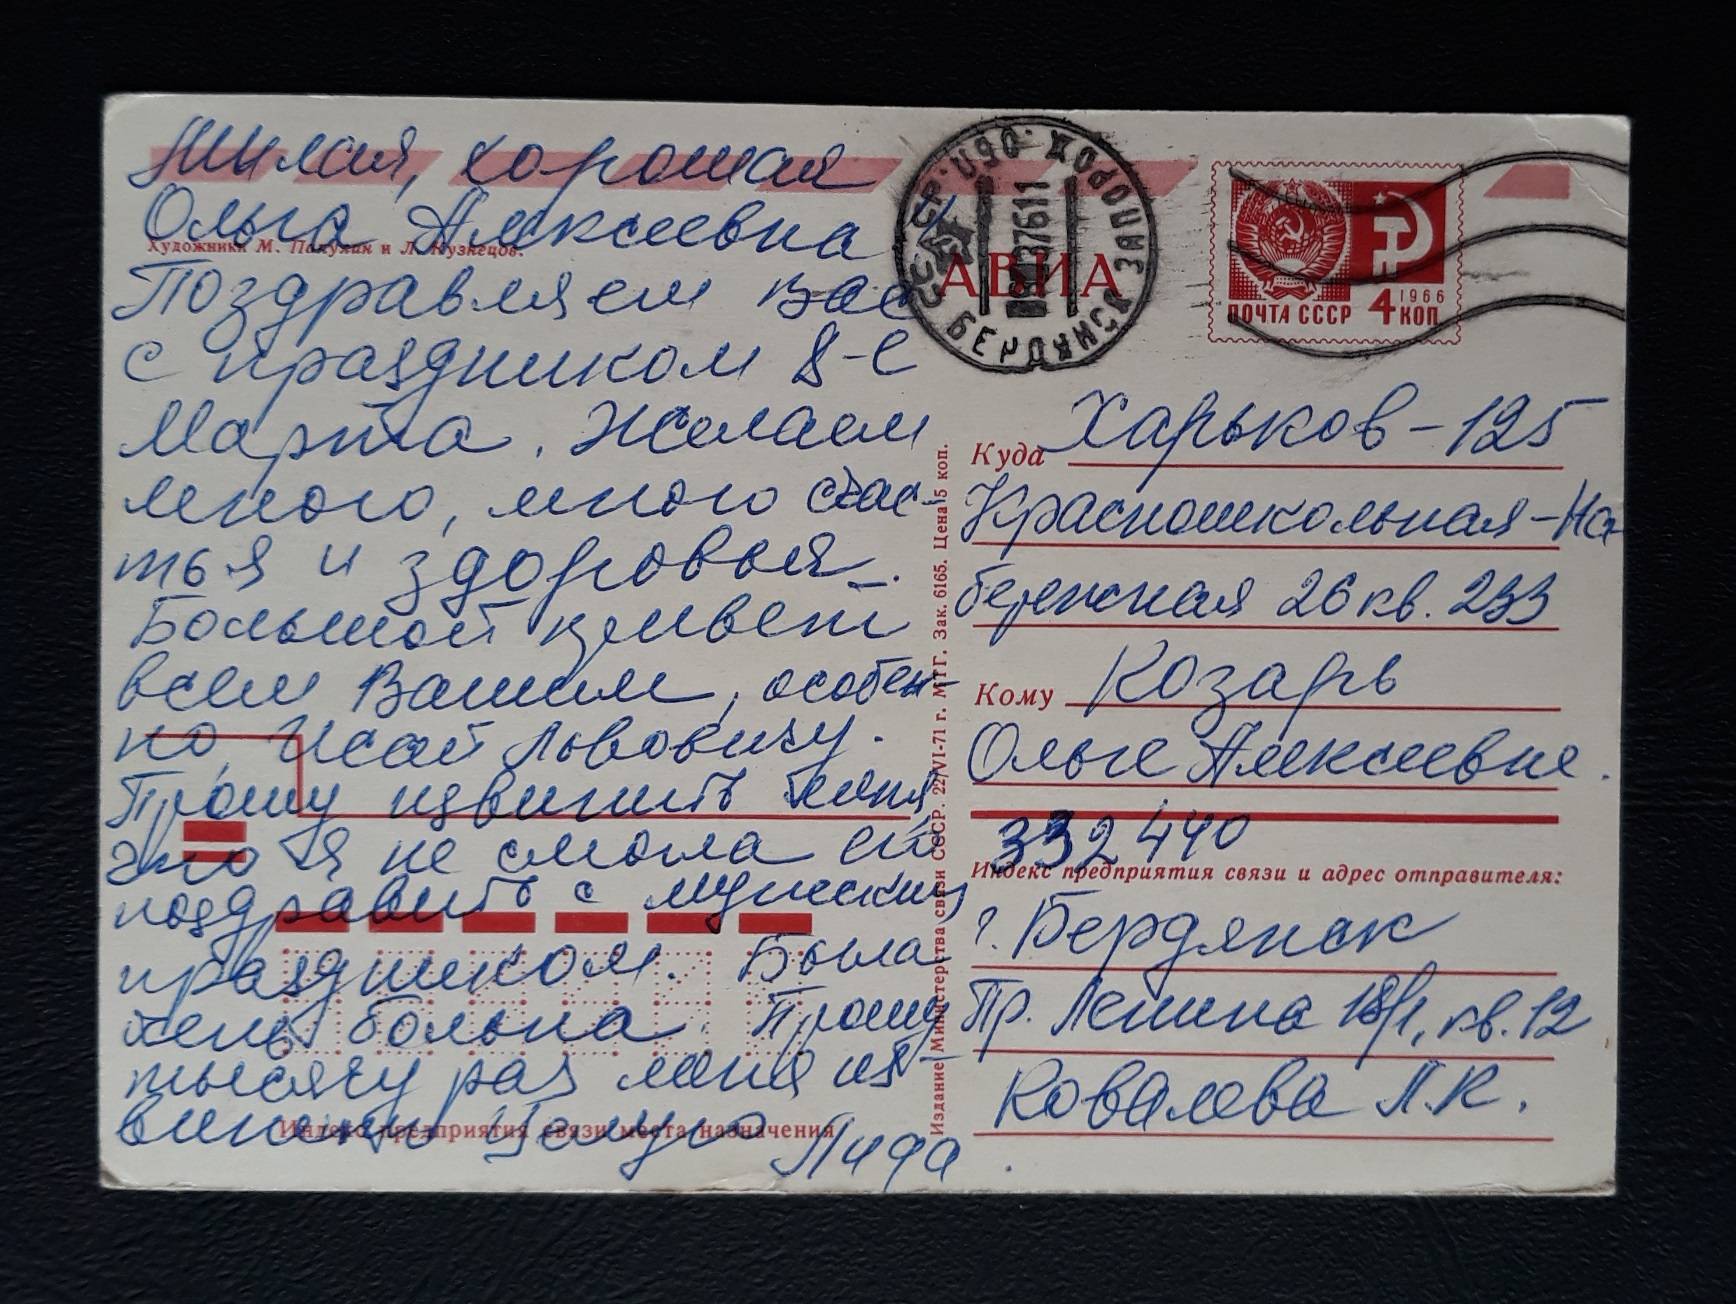 Милая, хорошая
Ольга Алексеевна!
Художники М. Папулин и Л. Кузнецов.
Поздравляем Вас
с праздником 8-е
Марта. Желаем
много, много счас-
тья и здоровья.
Большой привет
всем Вашим, особен-
но, Исай Львовичу.
Прошу извинить меня,
что я не смогла его
поздравить с мужским
праздником. Была
очень больна. Прошу
тысячу раз меня из-
винить. Целую Лида.
Индекс предприятия связи места назначения
Издание Министерства связи СССР. 22/VI-71 г. МТГ. Зак. 6165. Цена 5 коп.
АВИА
БЕРДЯНСК ЗАПОРОЖ. ОБЛ.
ПОЧТА СССР 4 КОП
1966
Куда Харьков-125
Красношкольная-На
бережная 26 кв. 233
Кому Козарь
Ольге Алексеевне.
332440
Индекс предприятия связи и адрес отправителя:
г. Бердянск
Пр. Ленина 18/1, кв. 12
Ковалева Л.К.